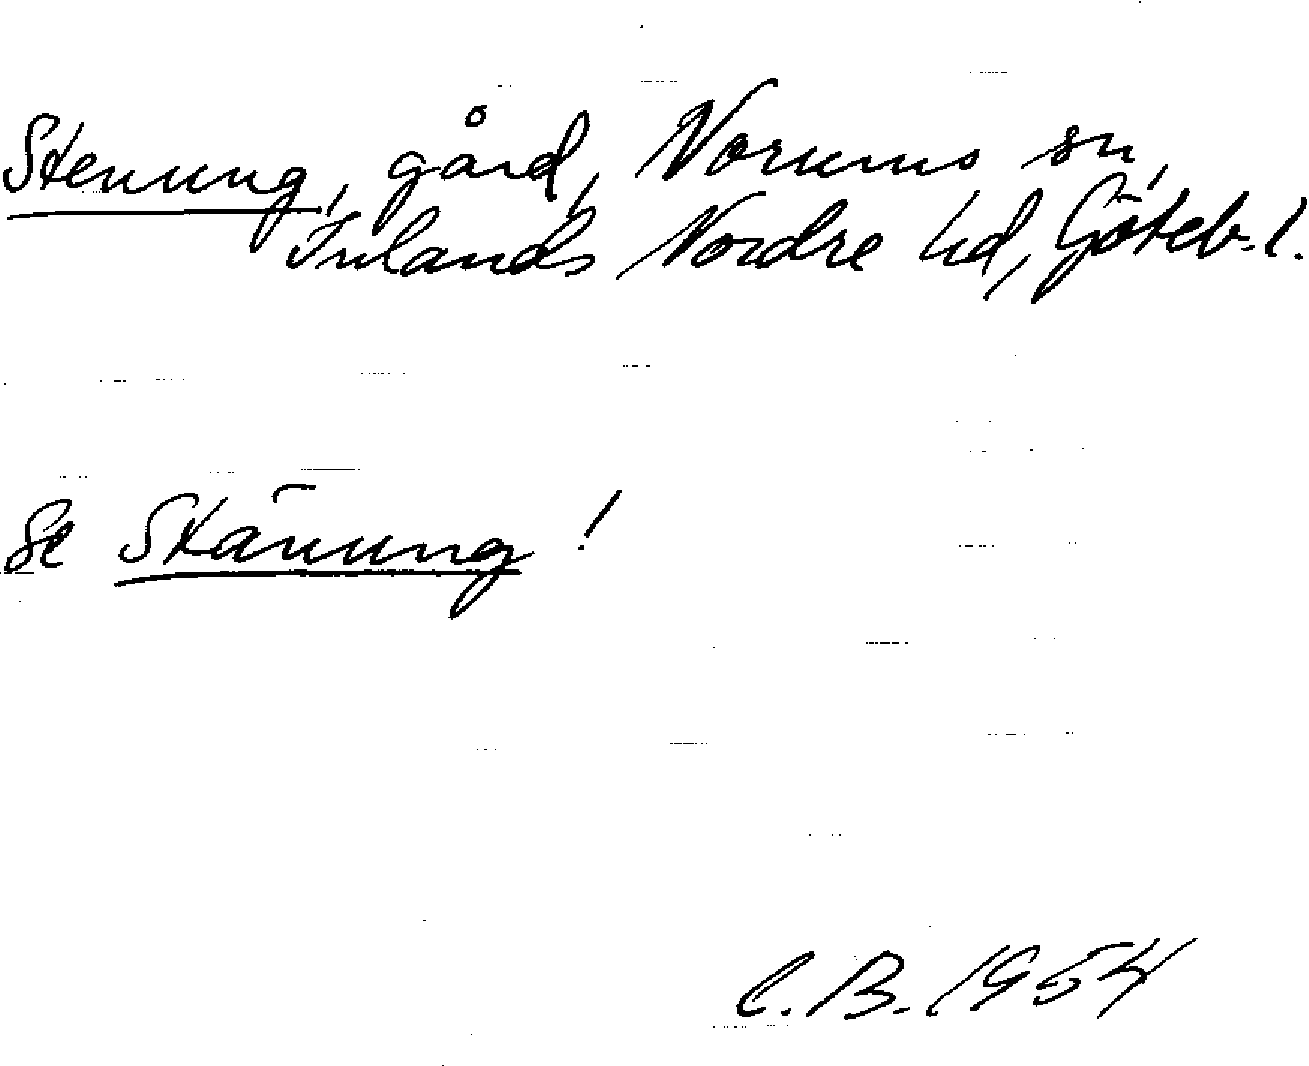 Stenung, gård, Norums sn,
Inlands Nordre hd, Göteb. l.
Se Stänung!
C.B. 1954